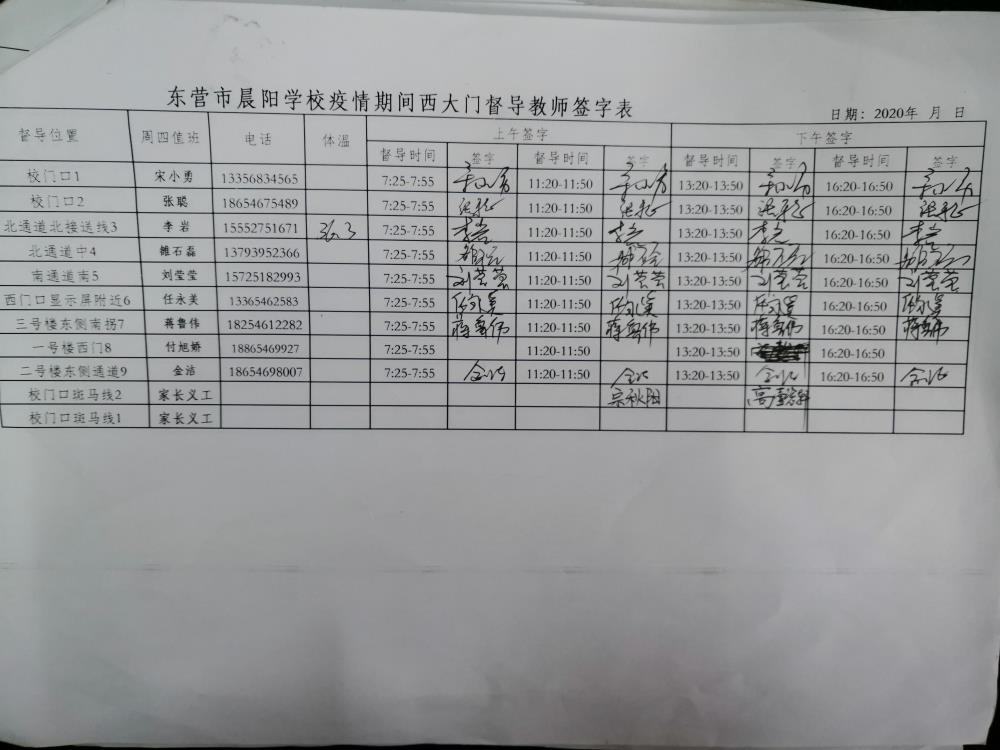 东营市晨阳学校疫情期间西大门督导教师签字表
日期：2020年 月 日
督导位置 周四值班 电话 体温 上午签字 下午签字
督导时间 签字 督导时间 签字 督导时间 签字 督导时间 签字
校门口1 宋小勇 13356834565 7:25-7:55 宋小勇 11:20-11:50 宋小勇 13:20-13:50 宋小勇 16:20-16:50 宋小勇
校门口2 张聪 18654675489 7:25-7:55 11:20-11:50 13:20-13:50 16:20-16:50
北通道北接送线3 李岩 15552751671 36.3 7:25-7:55 李岩 11:20-11:50 李岩 13:20-13:50 李岩 16:20-16:50 李岩
北通道中4 雒石磊 13793952366 7:25-7:55 11:20-11:50 13:20-13:50 16:20-16:50
南通道南5 刘莹莹 15725182993 7:25-7:55 刘莹莹 11:20-11:50 刘莹莹 13:20-13:50 刘莹莹 16:20-16:50 刘莹莹
西门口显示屏附近6 任永美 13365462583 7:25-7:55 任永美 11:20-11:50 任永美 13:20-13:50 任永美 16:20-16:50 任永美
三号楼东侧南拐7 蒋鲁伟 18254612282 7:25-7:55 蒋鲁伟 11:20-11:50 蒋鲁伟 13:20-13:50 蒋鲁伟 16:20-16:50 蒋鲁伟
一号楼西门8 付旭娇 18865469927 7:25-7:55 11:20-11:50 13:20-13:50 16:20-16:50
二号楼东侧通道9 金洁 18654698007 7:25-7:55 金洁 11:20-11:50 金洁 13:20-13:50 金洁 16:20-16:50 金洁
校门口斑马线2 家长义工 宗秋阳
校门口斑马线1 家长义工